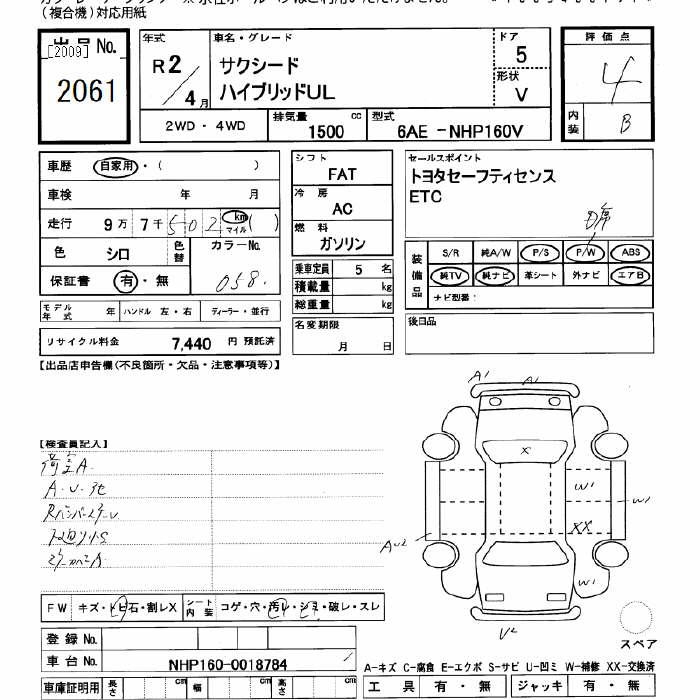 (複合機)対応用紙
出品 No.
[2009]
2061
年式
R2/4月
車名・グレード
サクシード
ハイブリッドUL
ドア
5
形状
V
評価点
4
内装
B
2WD・4WD
排気量 1500 cc
型式 6AE -NHP160V
車歴 自家用・( )
車検 年 月
走行 9万 7千 502 km マイル ( )
色 シロ 色替 カラーNo. 058.
保証書 有・無
モデル年式 年 ハンドル 左・右 ディーラー・並行
リサイクル料金 7,440 円 預託済
シフト
FAT
冷房
AC
燃料
ガソリン
乗車定員 5 名
積載量 kg
総重量 kg
名変期限
月 日
セールスポイント
トヨタセーフティセンス
ETC
装備品
S/R 純A/W P/S P/W ABS
純TV 純ナビ 革シート 外ナビ エアB
ナビ型番:
後日品
【出品店申告欄(不良箇所・欠品・注意事項等)】
【検査員記入】
A1 A1
X
W1
W1
XX
AU2
W1
U2
FW キズ・トビ石・割レX シート内装 コゲ・穴・汚レ・シミ・破レ・スレ
登録 No.
車台 No. NHP160-0018784
車庫証明用 長さ cm 幅 cm 高さ cm
スペア
A-キズ C-腐食 E-エクボ S-サビ U-凹ミ W-補修 XX-交換済
工具 有・無 ジャッキ 有・無